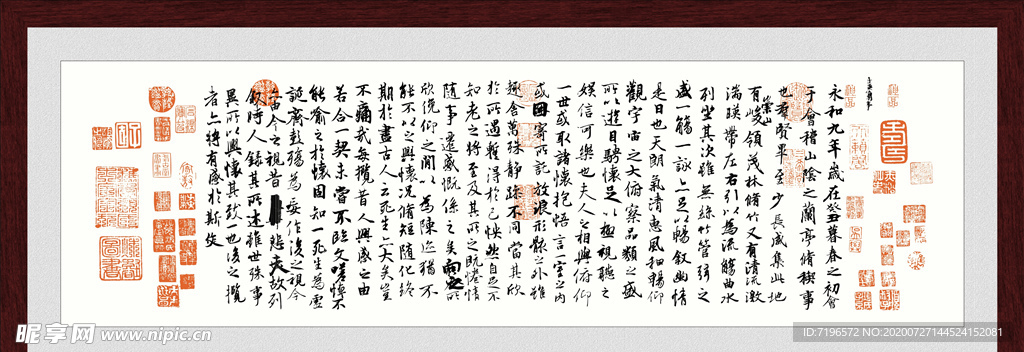 永和九年歲在癸丑暮春之初會
于會稽山陰之蘭亭脩稧事
也羣賢畢至少長咸集此地
有崇山峻領茂林脩竹又有清流激
湍暎帶左右引以為流觴曲水
列坐其次雖無絲竹管弦之
盛一觴一詠亦足以暢敘幽情
是日也天朗氣清惠風和暢仰
觀宇宙之大俯察品類之盛
所以遊目騁懷足以極視聽之
娛信可樂也夫人之相與俯仰
一世或取諸懷抱悟言一室之內
或因寄所託放浪形骸之外雖
趣舍萬殊靜躁不同當其欣
於所遇暫得於己怏然自足不
知老之將至及其所之既惓情
隨事遷感慨係之矣向之所
欣俛仰之間以為陳迹猶不
能不以之興懷況脩短隨化終
期於盡古人云死生亦大矣豈
不痛哉每攬昔人興感之由
若合一契未嘗不臨文嗟悼不
能喻之於懷固知一死生為虛
誕齊彭殤為妄作後之視今
亦由今之視昔悲夫故列
敘時人錄其所述雖世殊事
異所以興懷其致一也後之攬
者亦將有感於斯文
昵享网 www.nipic.cn
ID:7196572 NO:20200727144524152081